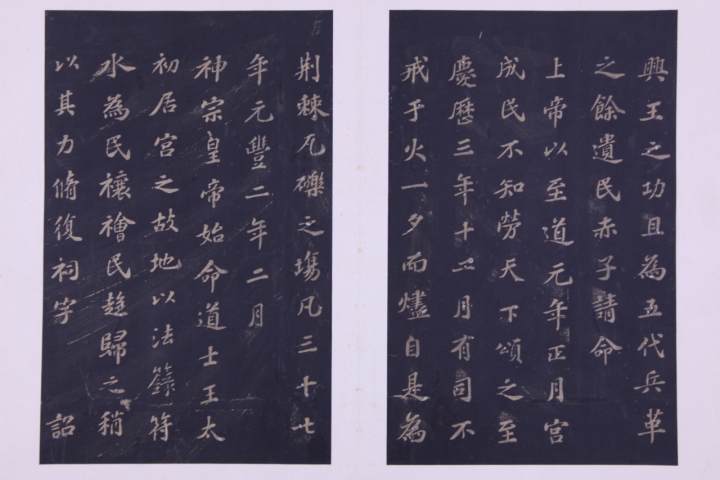 興王之功且為五代兵革
之餘遺民赤子請命
上帝以至道元年正月宮
成民不知勞天下頌之至
慶歷三年十二月有司不
戒于火一夕而燼自是為
荆棘瓦礫之場凡三十七
年元豐二年二月
神宗皇帝始命道士王太
初居宮之故地以法籙符
水為民禳禬民趍歸之稍
以其力脩復祠宇 詔